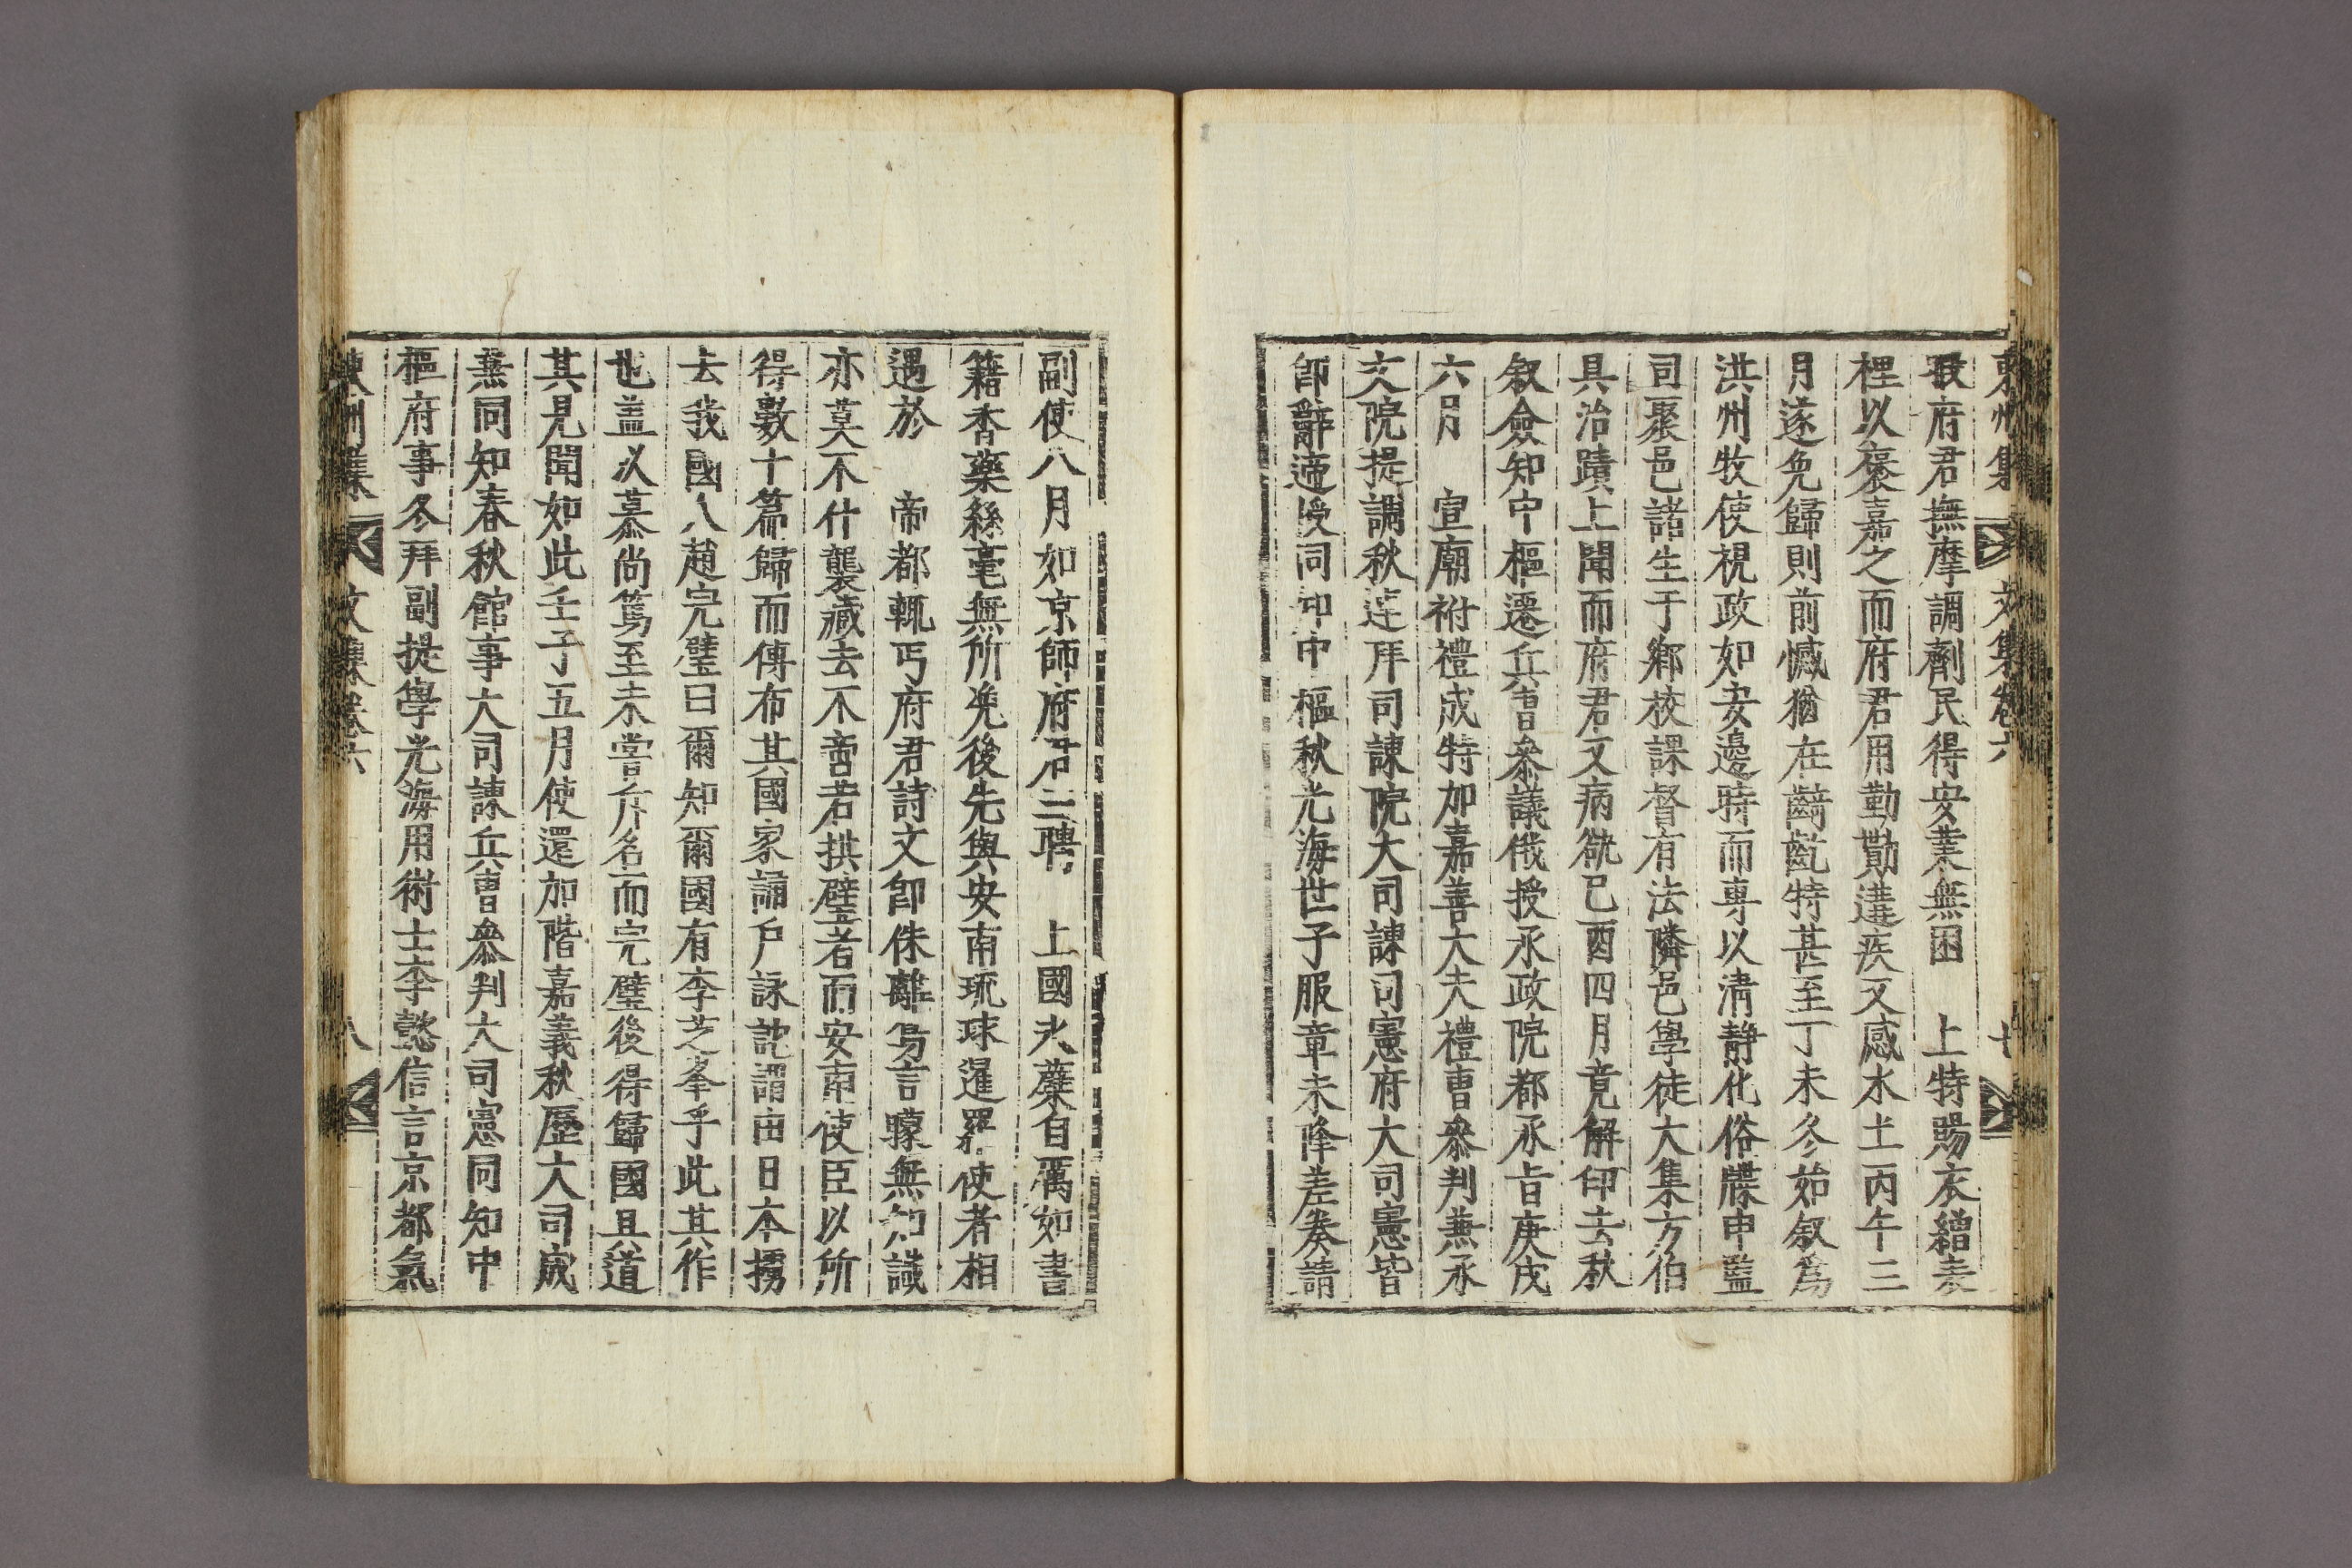 東州集 文集卷六 七
珉府君撫摩調劑民得安業無困 上特賜衣繒表
裡以褒嘉之而府君用勤勩遘疾又感水土丙午三
月遂免歸則前憾猶在齮齕特甚至丁未冬始叙爲
洪州牧使視政如安邊時而專以清靜化俗牒申監
司聚邑諸生于鄉校課督有法隣邑學徒大集方伯
具治蹟上聞而府君又病欲己酉四月竟解印去秋
叙僉知中樞遷兵曹叅議俄授承政院都承旨庚戌
六月 宣廟祔禮成特加嘉善大夫禮曹叅判兼承
文院提調秋莲拜司諫院大司諫司憲府大司憲皆
即辭遞授同知中樞秋光海世子服章未降差奏請
副使八月如京師府君三聘 上國氷蘗自厲如書
籍香藥絲毫無所凂後先與安南琉球暹羅使者相
遇於 帝都輒丐府君詩文卽侏離舄言矇無知識
亦莫不什襲藏去不啻若拱璧者而安南使臣以所
得數十篇歸而傳布其國家誦戶詠訛謂由日本擄
去我國人趙完璧曰爾知爾國有李芝峯乎此其作
也盖以慕尚篤至未嘗斥名而完璧後得歸國且道
其見聞如此壬子五月使還加階嘉義秋歷大司成
兼同知春秋館事大司諫兵曹叅判大司憲同知中
樞府事冬拜副提學光海用術士李懿信言京都氣
東州集 文集卷六 八